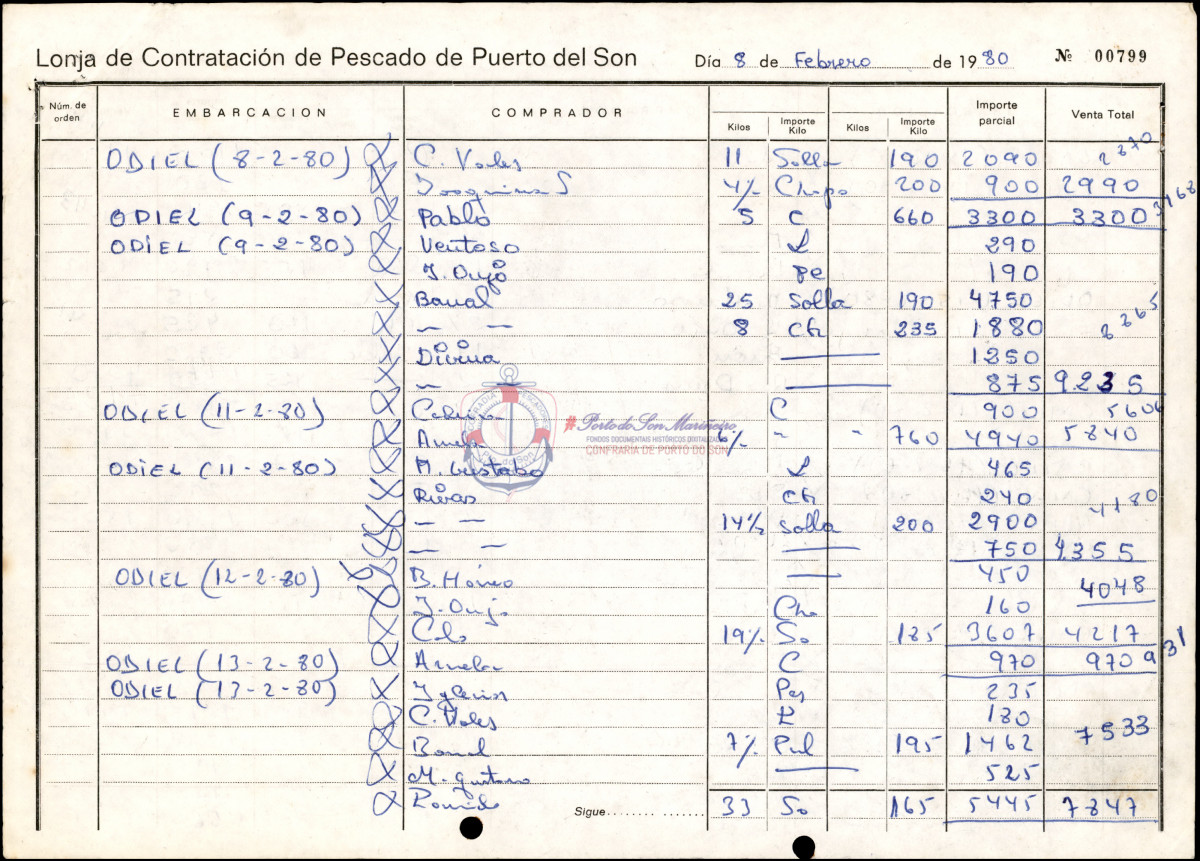 Lonja de Contratación de Pescado de Puerto del Son Día 8 de Febrero de 1980 Nº 00799
Núm. de orden EMBARCACION COMPRADOR Kilos Importe Kilo Kilos Importe Kilo Importe parcial Venta Total
ODIEL (8-2-80) C. Vales 11 Solla 190 2090 2870
Joaquina S 4½ Chopo 200 900 2990
ODIEL (9-2-80) Pablo 5 C 660 3300 3300 3168
ODIEL (9-2-80) Ventoso L 290
J. Oujo pe 190
Banal 25 Solla 190 4750
— — 8 Ch 235 1880 8865
Divina —— 1250
— —— 875 9235
ODIEL (11-2-80) C 900 5606
Arnela 6½ " " 760 4940 5840
ODIEL (11-2-80) M. Gustabo L 465
Rivas Ch 240 4180
— — 14½ Solla 200 2900
— — —— 750 4355
ODIEL (12-2-80) B. —— 450 4048
J. Oujo Cho 160
Celo 19½ So 185 3607 4217
ODIEL (13-2-80) Arnela C 970 970 931
ODIEL (13-2-80) Iglesias Pes 235
C. Vales L 180 7533
Banal 7½ Pul 195 1462
M. Gustavo —— 525
33 So 165 5445 7847
Sigue
#PortodoSonMariñeiro
FONDOS DOCUMENTAIS HISTÓRICOS DIXITALIZADOS
CONFRARIA DE PORTO DO SON